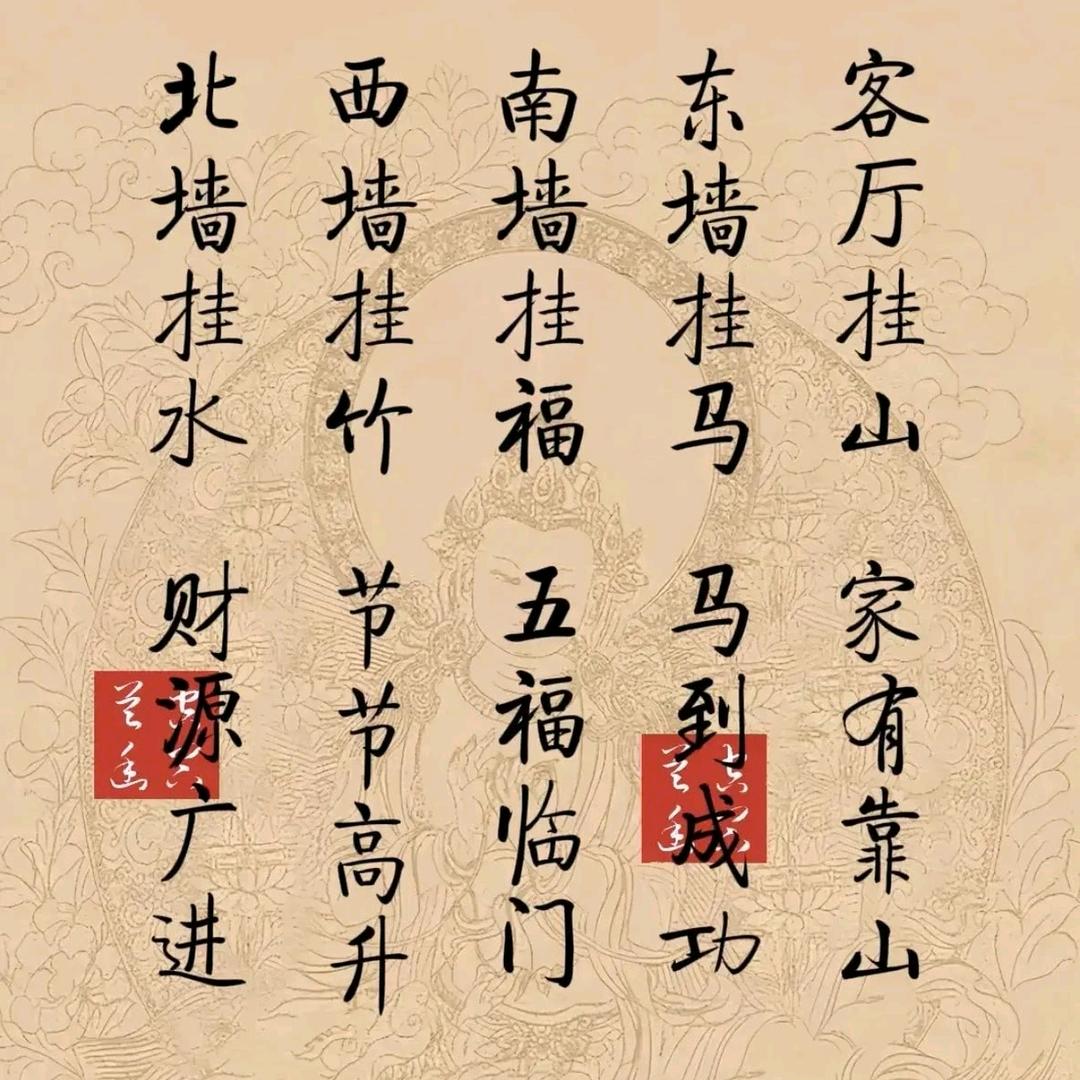 客厅挂山 家有靠山
东墙挂马 马到成功
南墙挂福 五福临门
西墙挂竹 节节高升
北墙挂水 财源广进